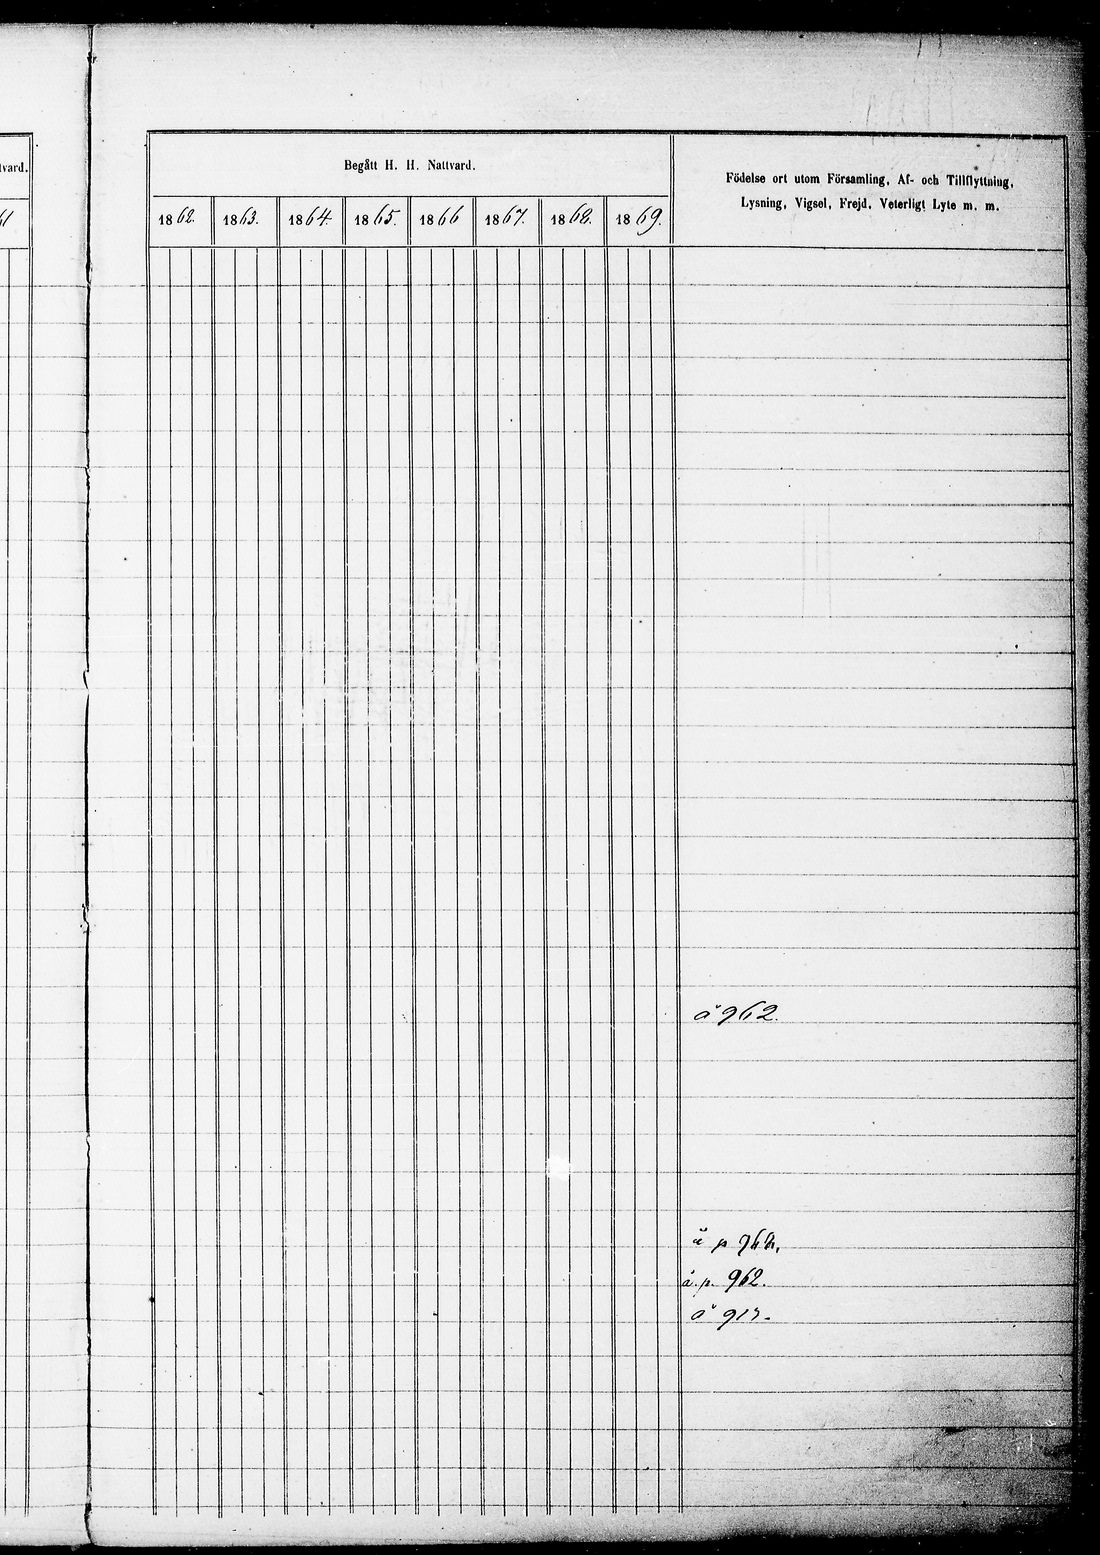 tvard.
61
Begått H. H. Nattvard.
1862. 1863. 1864. 1865. 1866 1867. 1868. 1869.
Födelse ort utom Församling, Af- och Tillflyttning,
Lysning, Vigsel, Frejd, Veterligt Lyte m. m.
å 962.
å p
å. p. 962.
å